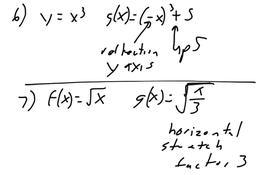 6) y = x³ g(x) = (-x)³ + 5
reflection up 5
y axis
7) f(x) = √x g(x) = √(x/3)
horizontal
stretch
factor 3